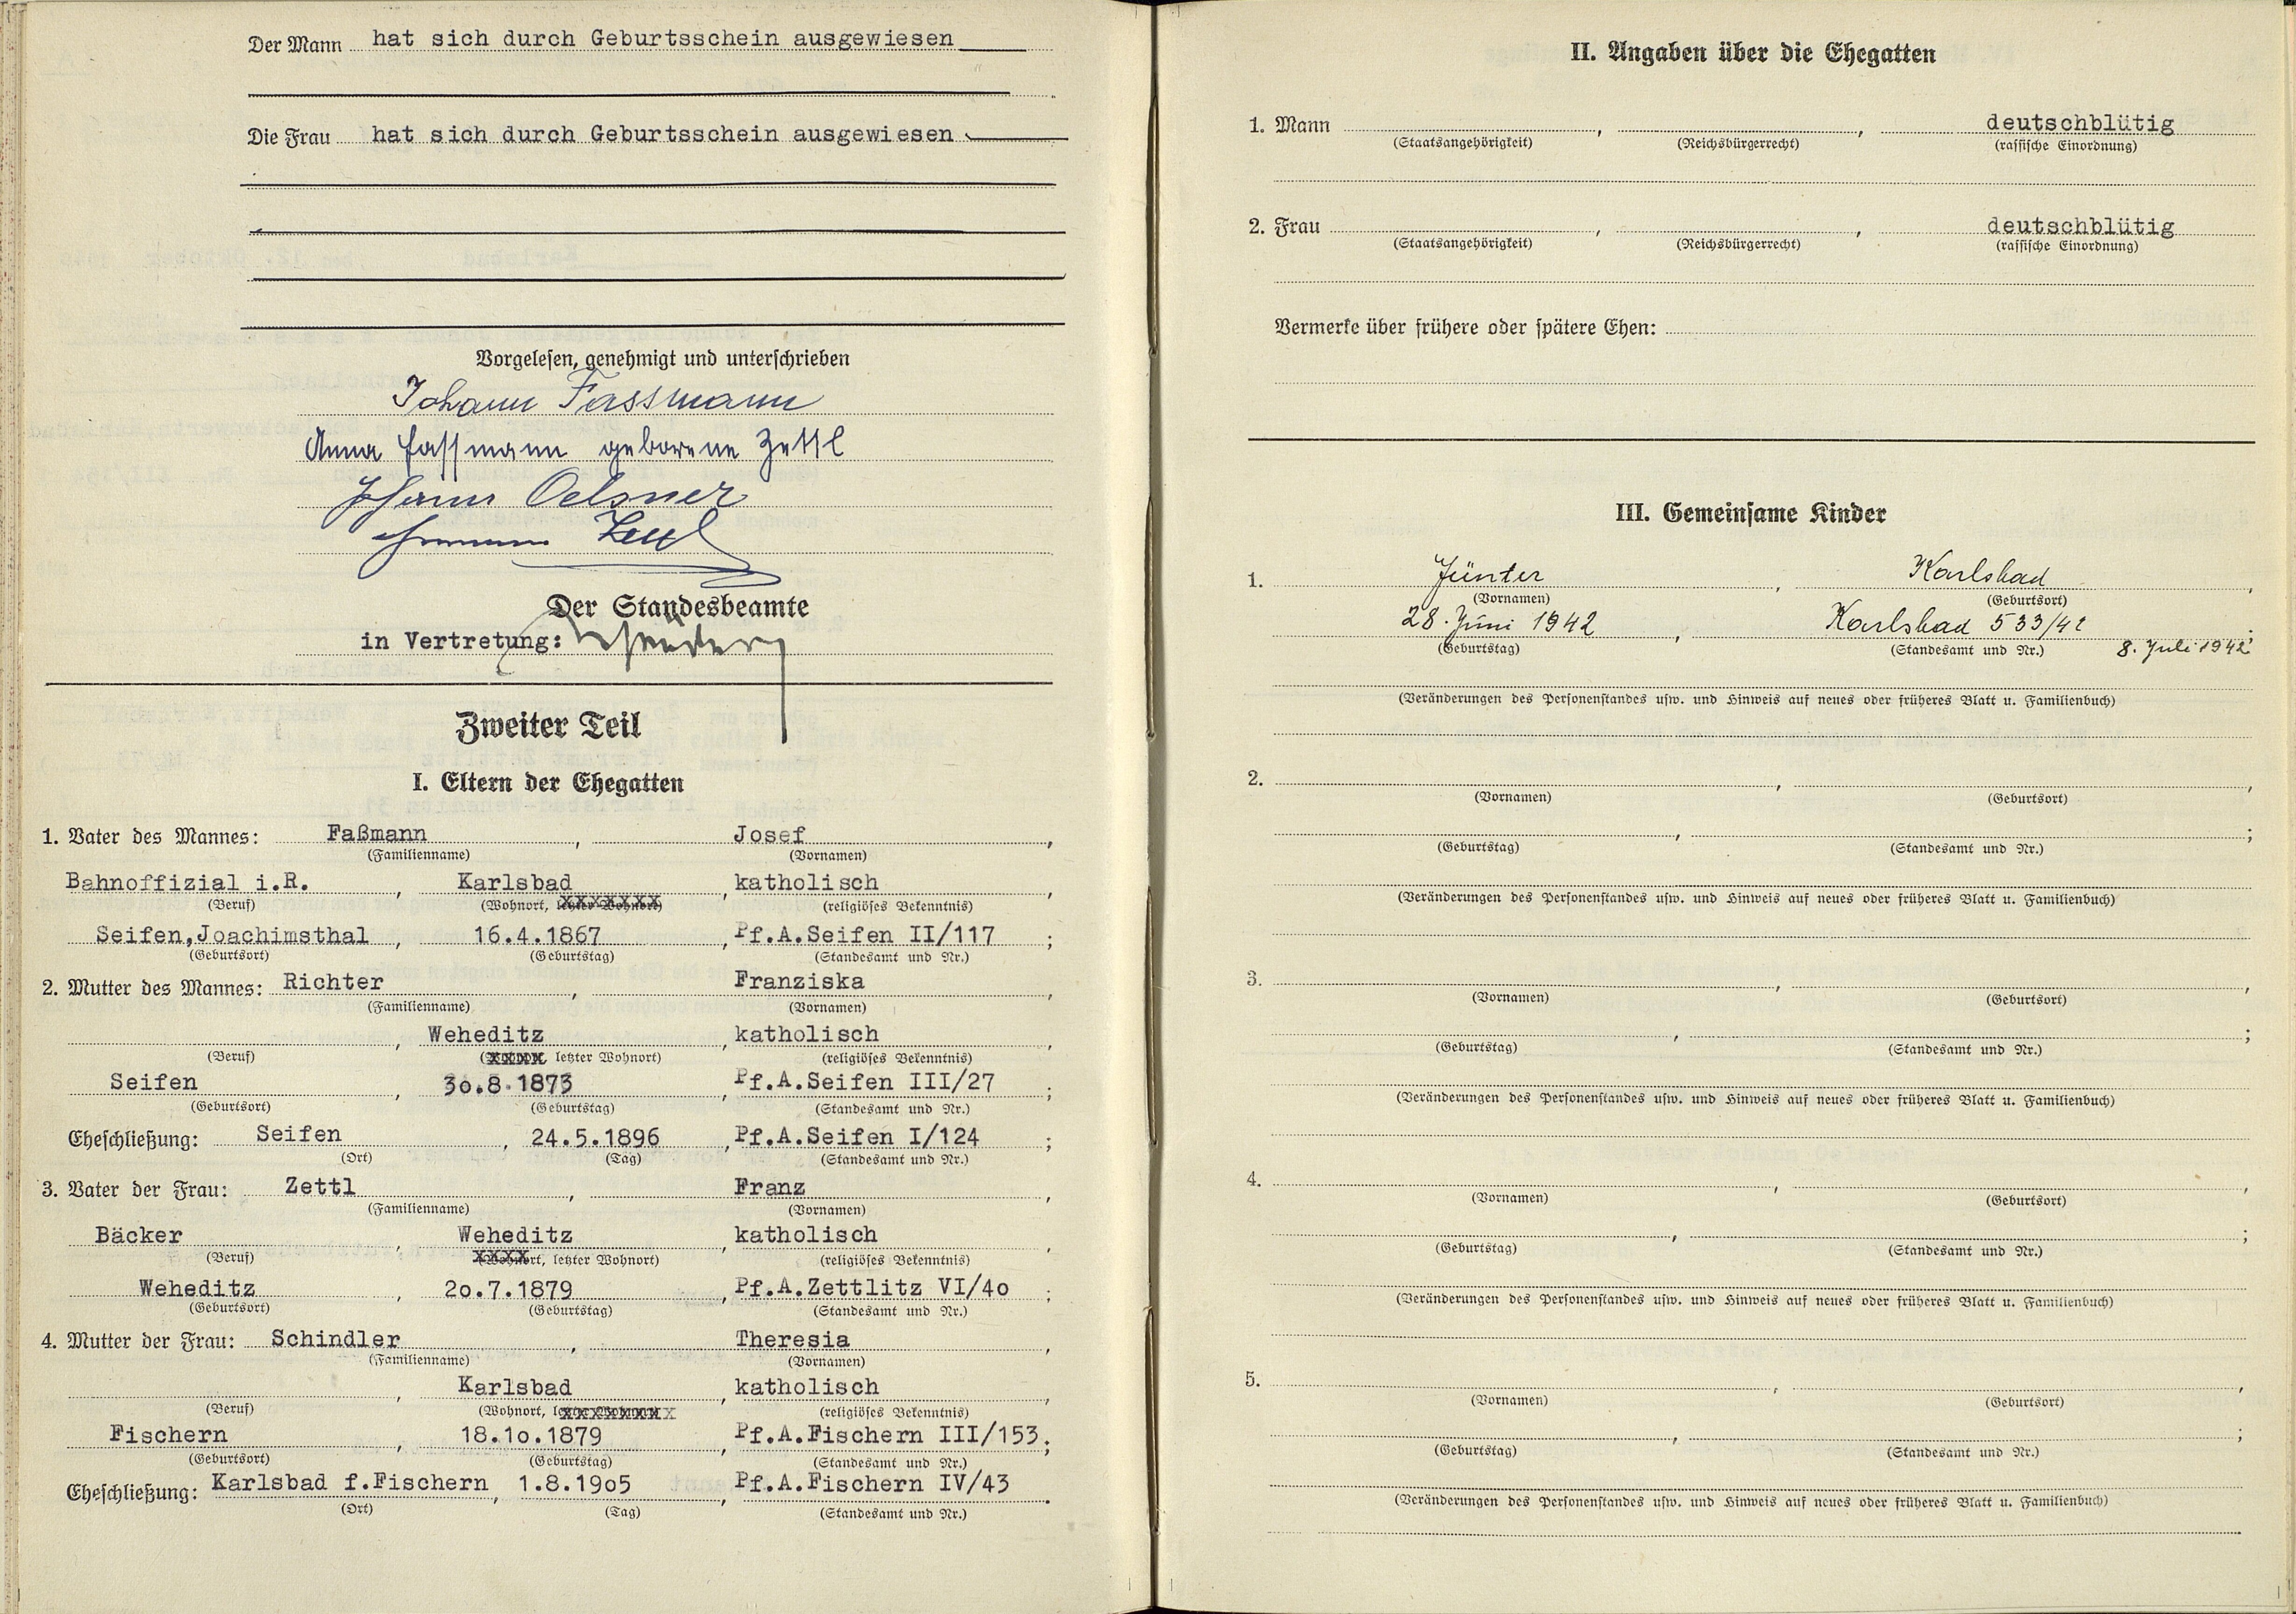 Der Mann hat sich durch Geburtsschein ausgewiesen
Die Frau hat sich durch Geburtsschein ausgewiesen
Vorgelesen, genehmigt und unterschrieben
Johann Fassmann
Anna Fassmann geborene Zettl
Johann Oelsner
Zettl
Der Standesbeamte
in Vertretung:
Zweiter Teil
I. Eltern der Ehegatten
1. Vater des Mannes: Faßmann, Josef,
(Familienname) (Vornamen)
Bahnoffizial i.R., Karlsbad, katholisch,
(Beruf) (Wohnort, letzter Wohnort) (religiöses Bekenntnis)
Seifen,Joachimsthal, 16.4.1867, Pf.A.Seifen II/117;
(Geburtsort) (Geburtstag) (Standesamt und Nr.)
2. Mutter des Mannes: Richter, Franziska,
(Familienname) (Vornamen)
, Weheditz, katholisch,
(Beruf) (Wohnort, letzter Wohnort) (religiöses Bekenntnis)
Seifen, 3o.8.1873, Pf.A.Seifen III/27;
(Geburtsort) (Geburtstag) (Standesamt und Nr.)
Eheschließung: Seifen, 24.5.1896, Pf.A.Seifen I/124;
(Ort) (Tag) (Standesamt und Nr.)
3. Vater der Frau: Zettl, Franz,
(Familienname) (Vornamen)
Bäcker, Weheditz, katholisch,
(Beruf) (Wohnort, letzter Wohnort) (religiöses Bekenntnis)
Weheditz, 2o.7.1879, Pf.A.Zettlitz VI/4o;
(Geburtsort) (Geburtstag) (Standesamt und Nr.)
4. Mutter der Frau: Schindler, Theresia,
(Familienname) (Vornamen)
, Karlsbad, katholisch,
(Beruf) (Wohnort, letzter Wohnort) (religiöses Bekenntnis)
Fischern, 18.1o.1879, Pf.A.Fischern III/153;
(Geburtsort) (Geburtstag) (Standesamt und Nr.)
Eheschließung: Karlsbad f.Fischern, 1.8.19o5, Pf.A.Fischern IV/43.
(Ort) (Tag) (Standesamt und Nr.)
II. Angaben über die Ehegatten
1. Mann , , deutschblütig
(Staatsangehörigkeit) (Reichsbürgerrecht) (rassische Einordnung)
2. Frau , , deutschblütig
(Staatsangehörigkeit) (Reichsbürgerrecht) (rassische Einordnung)
Vermerke über frühere oder spätere Ehen:
III. Gemeinsame Kinder
1. Günter, Karlsbad,
(Vornamen) (Geburtsort)
28. Juni 1942, Karlsbad 533/42;
(Geburtstag) (Standesamt und Nr.) 8. Juli 1942
(Veränderungen des Personenstandes usw. und Hinweis auf neues oder früheres Blatt u. Familienbuch)
2. , ,
(Vornamen) (Geburtsort)
, ;
(Geburtstag) (Standesamt und Nr.)
(Veränderungen des Personenstandes usw. und Hinweis auf neues oder früheres Blatt u. Familienbuch)
3. , ,
(Vornamen) (Geburtsort)
, ;
(Geburtstag) (Standesamt und Nr.)
(Veränderungen des Personenstandes usw. und Hinweis auf neues oder früheres Blatt u. Familienbuch)
4. , ,
(Vornamen) (Geburtsort)
, ;
(Geburtstag) (Standesamt und Nr.)
(Veränderungen des Personenstandes usw. und Hinweis auf neues oder früheres Blatt u. Familienbuch)
5. , ,
(Vornamen) (Geburtsort)
, ;
(Geburtstag) (Standesamt und Nr.)
(Veränderungen des Personenstandes usw. und Hinweis auf neues oder früheres Blatt u. Familienbuch)